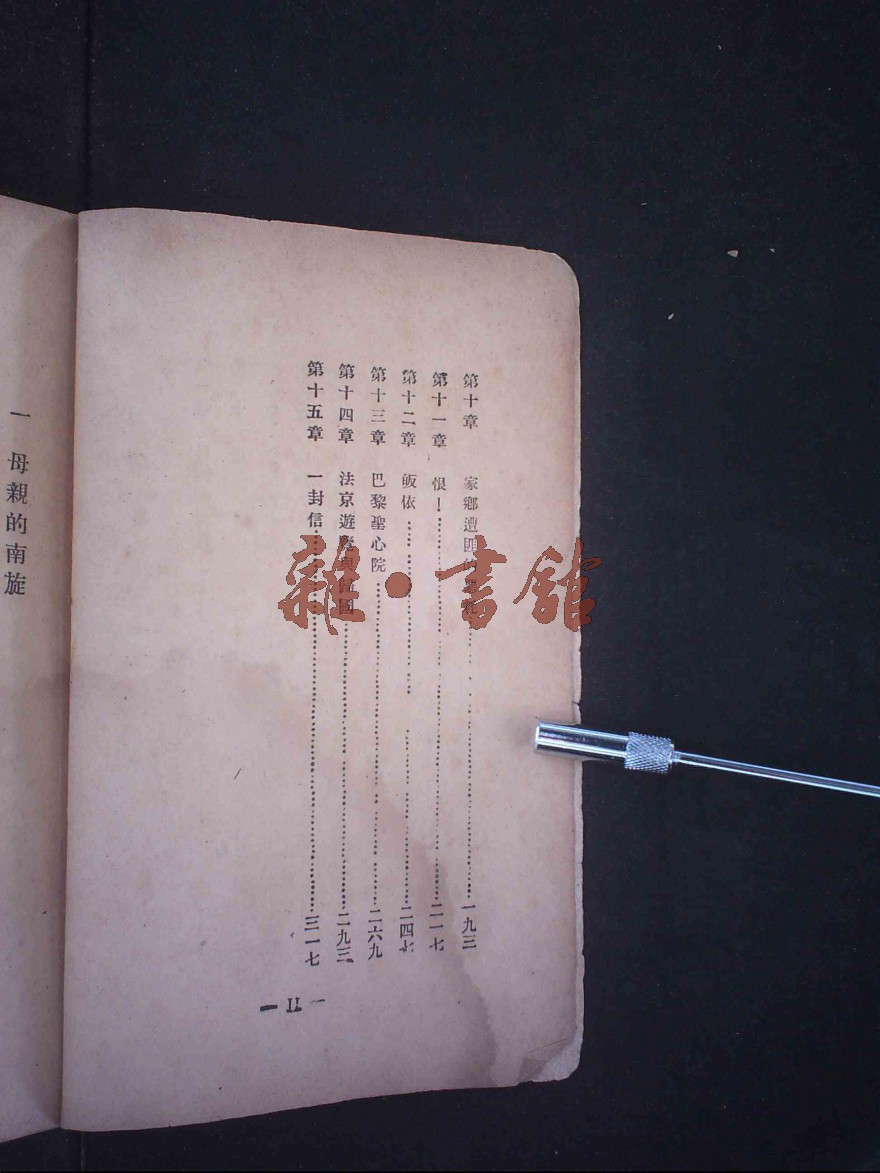 第十章 家鄉遭匪的一九三
第十一章 恨！二一七
第十二章 皈依二四七
第十三章 巴黎聖心院二六九
第十四章 法京遊覽與歸國二九三
第十五章 一封信三一七
— II —
一 母親的南旋
雜·書館